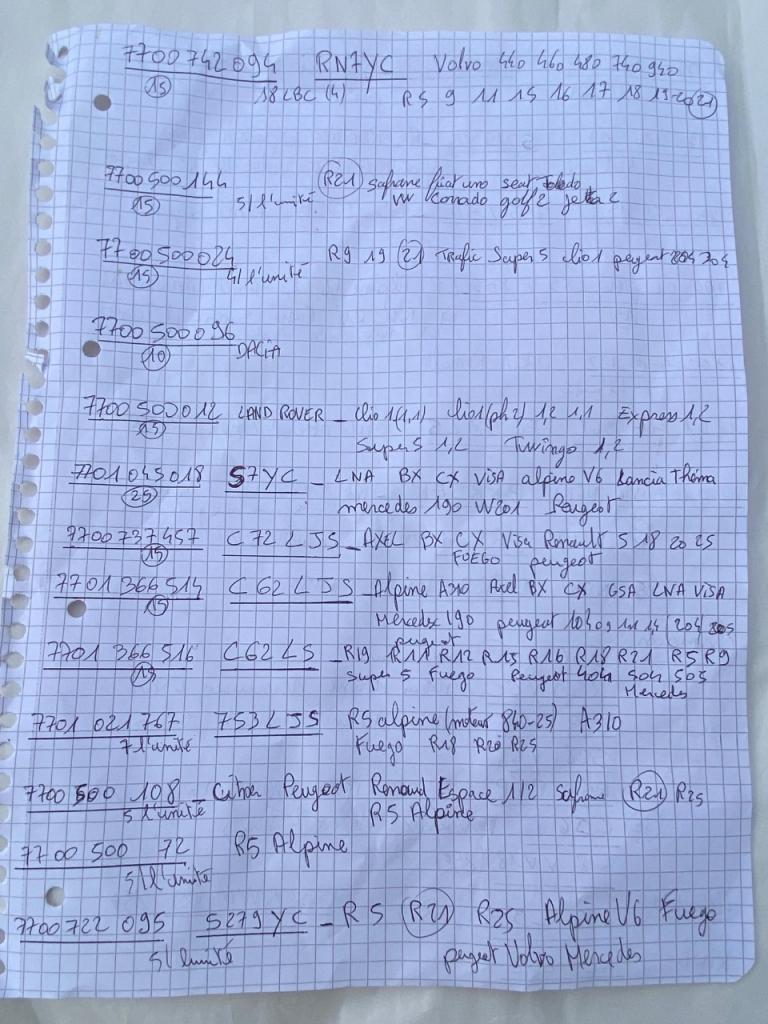 7700742094 RN7YC Volvo 440 460 480 740 940
15 18LBC (4) R5 9 11 15 16 17 18 19 20 21
7700500144 R21 Safrane fiat uno seat Toledo
15 5/l'unité VW Corrado golf 2 jetta 2
7700500024 R9 19 21 Trafic Super 5 clio 1 peugeot 204 304
15 4/l'unité
7700500096
10 DACIA
7700500012 LAND ROVER _ Clio 1 (1,1) clio 1 (ph2) 1,2 1,1 Express 1,2
15 Super 5 1,2 Twingo 1,2
7701045018 S7YC _ LNA BX CX VISA alpine V6 Lancia Thema
25 mercedes 190 W201 Peugeot
7700737457 C72LJS _ AXEL BX CX Visa Renault 5 18 20 25
15 FUEGO peugeot
7701366514 C62LJS _ Alpine A310 Axel BX CX GSA LNA VISA
15 Mercedes 190 peugeot 104 204 305
peugeot
7701 366 516 C62LS _ R19 R11 R12 R15 R16 R18 R21 R5 R9
15 Super 5 Fuego Peugeot 404 504 505
Mercedes
7701 021 767 753LJS R5 alpine (moteur 840-25) A310
7 l'unité Fuego R18 R20 R25
7700 500 108 _ Citroen Peugeot Renaud Espace 1/2 Safrane R21 R25
5 l'unité R5 Alpine
7700 500 72 R5 Alpine
5/l'unité
7700722 095 S279YC _ R5 R21 R25 Alpine V6 Fuego
5/l'unité peugeot Volvo Mercedes